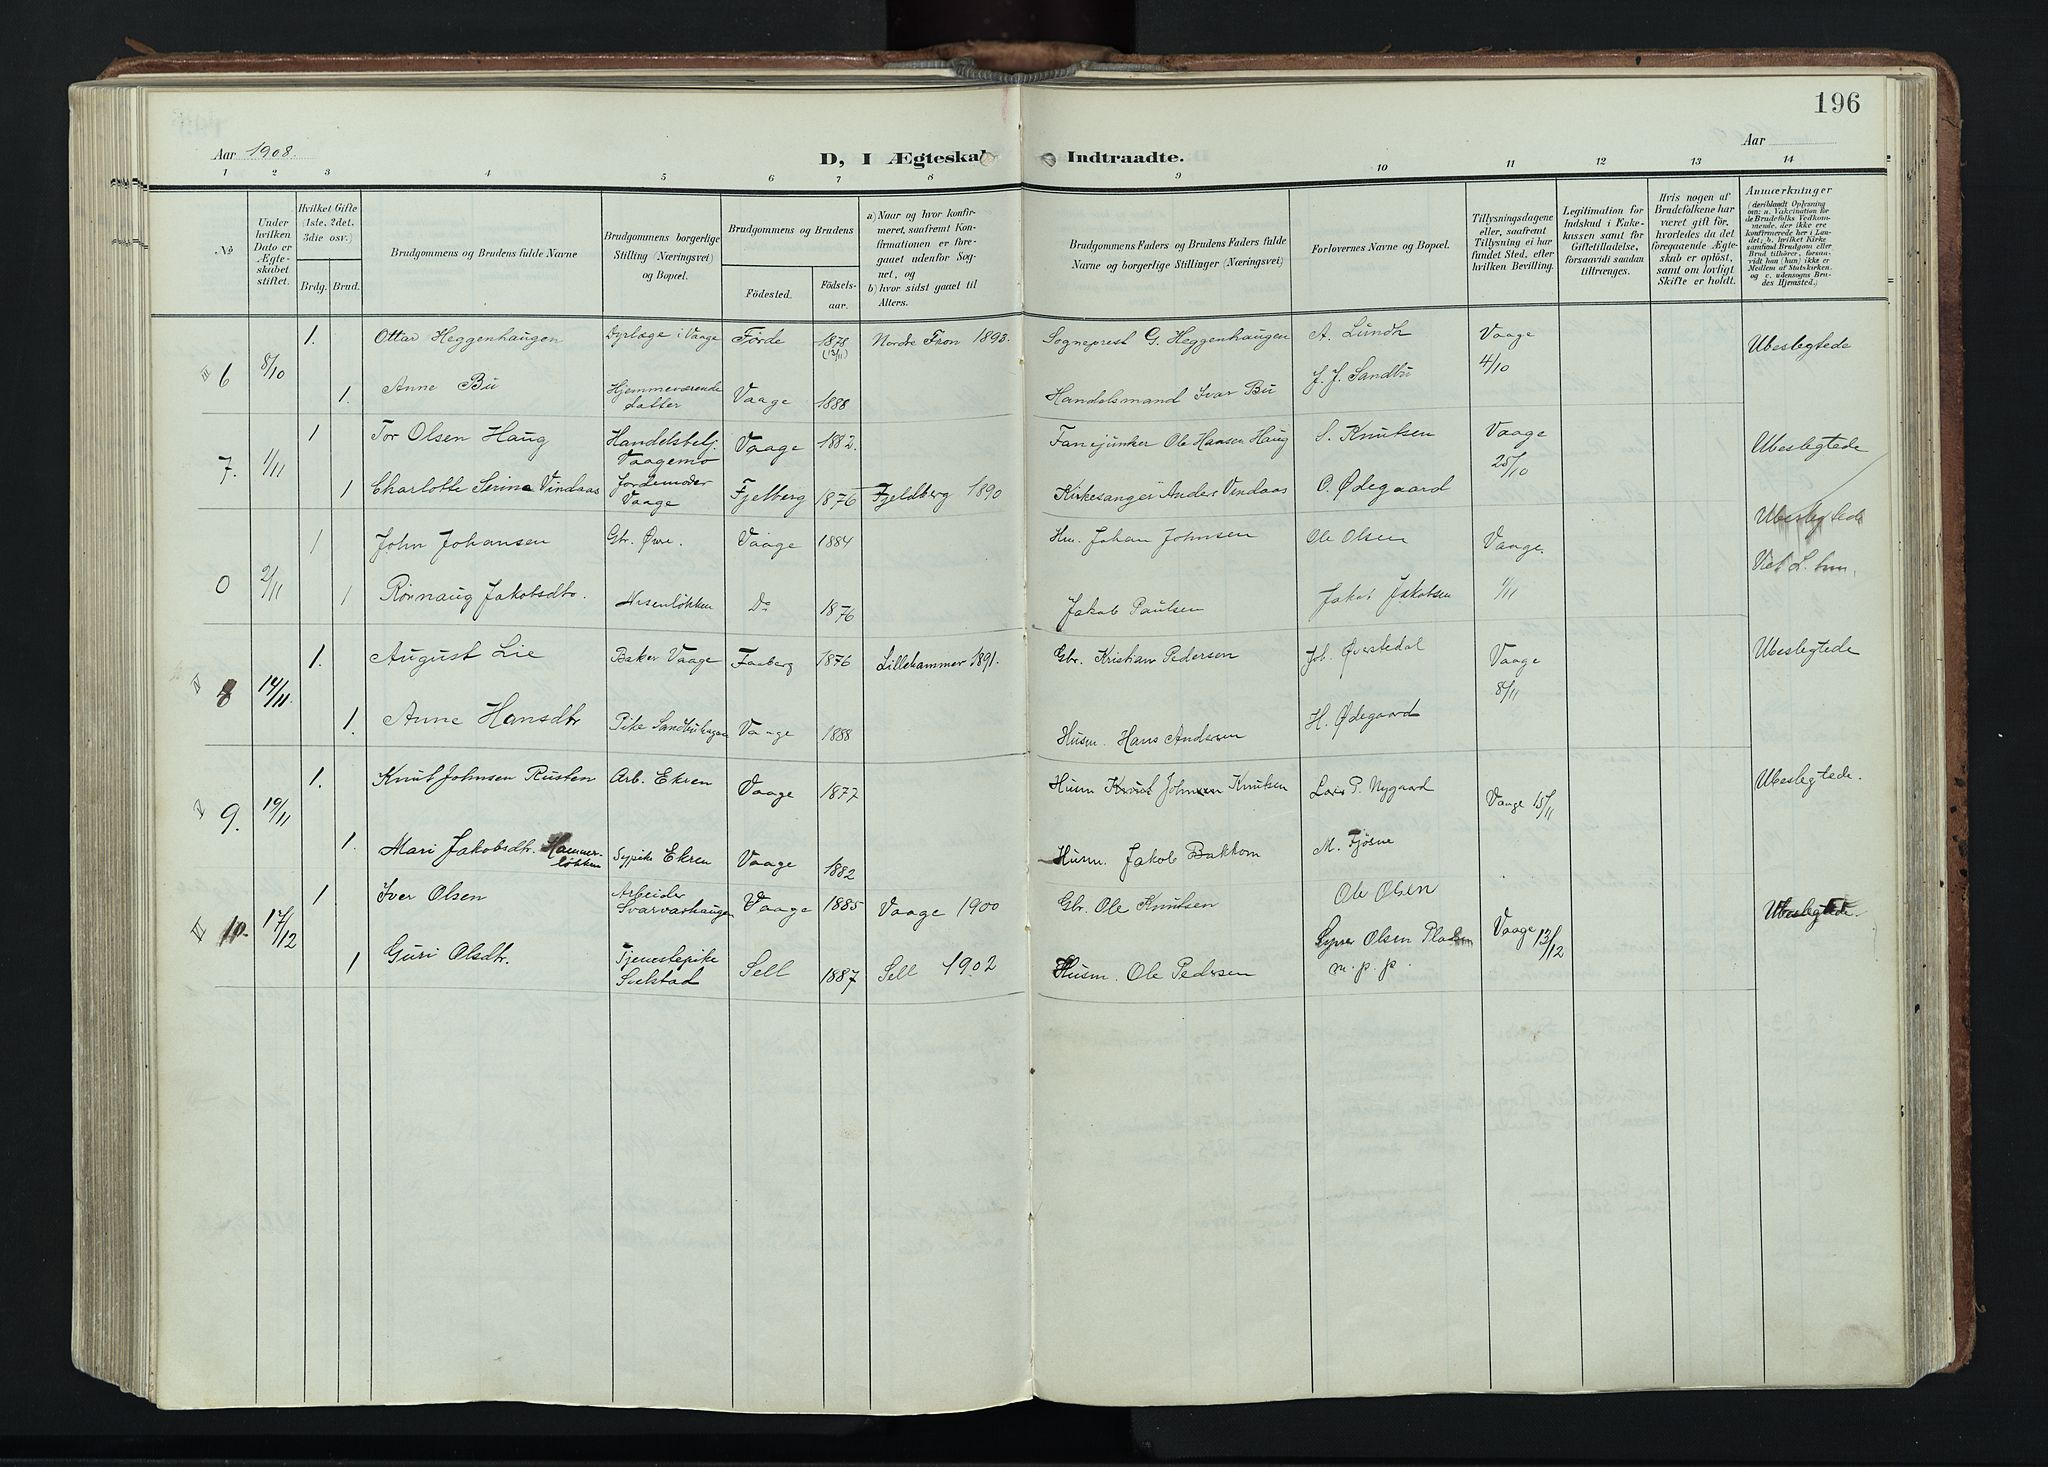 196
Aar 1908.
D, I Ægteskab Indtraadte.
Aar
1 2 3 4 5 6 7 8 9 10 11 12 13 14
No
Under hvilken Dato er Ægteskabet stiftet.
Hvilket Gifte (1ste, 2det, 3die osv.)
Brdg. Brud.
Brudgommens og Brudens fulde Navne
Brudgommens borgerlige Stilling (Næringsvei) og Bopæl.
Brudgommens og Brudens
Födested. Födselsaar.
a) Naar og hvor konfirmeret, saafremt Konfirmationen er foregaaet udenfor Sognet, og
b) hvor sidst gaaet til Alters.
Brudgommens Faders og Brudens Faders fulde Navne og borgerlige Stillinger (Næringsvei)
Forlovernes Navne og Bopæl.
Tillysningsdagene eller, saafremt Tillysning ei har fundet Sted, efter hvilken Bevilling.
Legitimation for Indskud i Enkekassen samt for Giftetilladelse, forsaavidt saadan tiltrænges.
Hvis nogen af Brudefolkene har været gift för, hvorledes da det foregaaende Ægteskab er oplöst, samt om lovligt Skifte er holdt.
Anmærkninger (deriblandt Oplysning om: a. Vakcination for de Brudefolks Vedkommende, der ikke ere konfirmerede her i Landet; b. hvilket Kirkesamfund Brudgom eller Brud tilhörer, forsaavidt han (hun) ikke er Medlem af Statskirken og c. udensogns Brudes Hjemsted.)
III 6 8/10 1. Ottar Heggenhaugen Dyrlæge i Vaage Førde 1878 (13/11) Nordre Fron 1893. Sogneprest G. Heggenhaugen A. Lundh Vaage 4/10 Ubeslegtede
1. Anne Bu Hjemmeværende datter Vaage 1888 Handelsmand Ivar Bu J. J. Sandbu
7. 1/11 1 Tor Olsen Haug Handelsbetj. Vaagemo Vaage 1882. Fanejunker Ole Hansen Haug S. Knutsen Vaage 25/10 Ubeslegtede
1 Charlotte Serine Vindaas Jordemoder Vaage Fjelberg 1876 Fjeldberg 1890 Kirkesanger Anders Vindaas O. Ødegaard
0 2/11 1 John Johansen Gbr. Øvre. Vaage 1884 Hm. Johan Johnsen Ole Olsen Vaage. 1/11 Ubeslegtede
1 Rønnaug Jakobsdtr. Do 1876 Jakob Paulsen Jakob Jakobsen
IV 8 14/11 1. August Lie Baker Vaage Faaberg 1876 Lillehammer 1891. Gbr. Kristian Pedersen Joh. Øverstedal Vaage 8/11 Ubeslegtede
1. Anne Hansdtr Pike Sandbuhagen Vaage 1888 Husm. Hans Andersen H. Ødegaard
V 9. 19/11 1. Knut Johnsen Rusten Arb. Ekren Vaage 1877 Husm Knut Johnsen Knutsen Lars P. Nygaard Vaage 15/11 Ubeslegtede.
1. Mari Jakobsdtr. Hammerløkken Sypike Ekren Vaage 1882 Husm. Jakob Bakkom M. Fjøsne
VI 10. 17/12 1 Iver Olsen Arbeider Svarvarhaugen Vaage 1885 Vaage 1900 Gbr. Ole Knutsen Ole Olsen Vaage 13/12 Ubeslegtede.
1 Guri Olsdtr. Tjenestepike Svelstad Sell 1887 Sell 1902 Husm. Ole Pedersen Syver Olsen m. p. p.